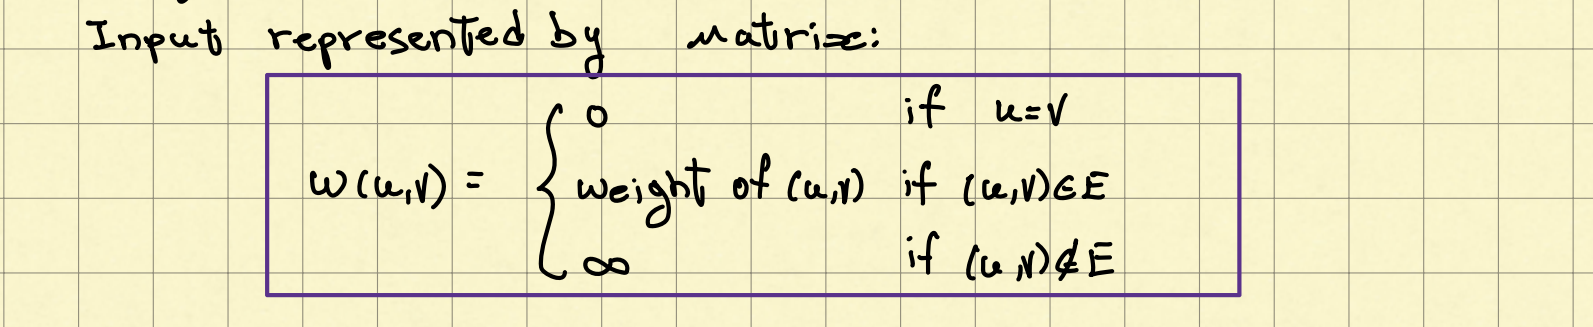 Input represented by matrix:
0 if u=v
w(u,v) = { weight of (u,v) if (u,v)∈E
∞ if (u,v)∉E